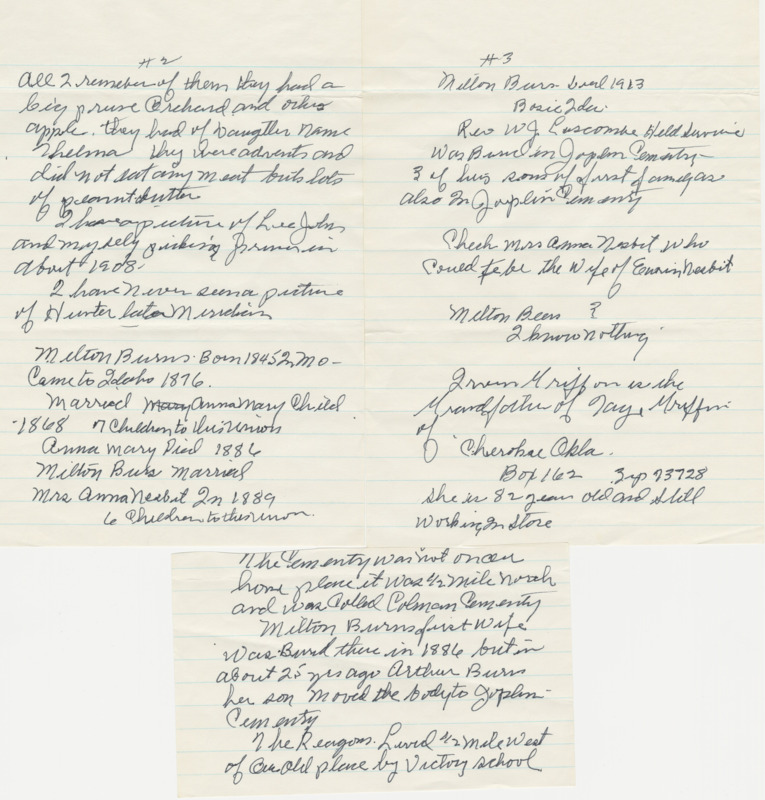 #2
All I remember of them they had a
big prune Orchard and other
apple. they had of Daugther name
Thelma they were advents and
did not eat any meat but lots
of peanut butter
I have a picture of Lee Johns
and my self picking prunes in
about 1908-
I have Never seen a picture
of Hunter later Meridian
Milton Burns. Born 1845 In Mo-
Came to Idaho 1876.
Married Mary Anna Mary Child
-1868 7 Children to this Union
Anna Mary Died 1886
Milton Burs Married
Mrs Anna Nesbit In 1889
6 Children to this union.
#3
Milton Burn died 1923
Bosie Ida.
Rev W.J. Luscombe Held Service
Was Buried in Joplin Cementy-
3 of his sons of first family are
also In Joplin Cementy
Check Mrs Anna Nesbit, who
Could be the Wife of Nesbit
Milton Beers ?
I know nothing
Irvin Griffon is the
Grandfather of Faye Griffin
of
Cherokee Okla.
Box 162 Zip 73728
she is 82 years old and still
Working In Store
The Cementy was not on our
home place it was 1/2 mile North
and was Called Colman Cementy
Milton Burns first Wife
Was Buried there in 1886 but in
about 25 yrs ago Arthur Burns
her son Moved the body to Joplin-
Cementy
The Reagons. Lived 1/2 Mile West
of Our Old place by Victory school